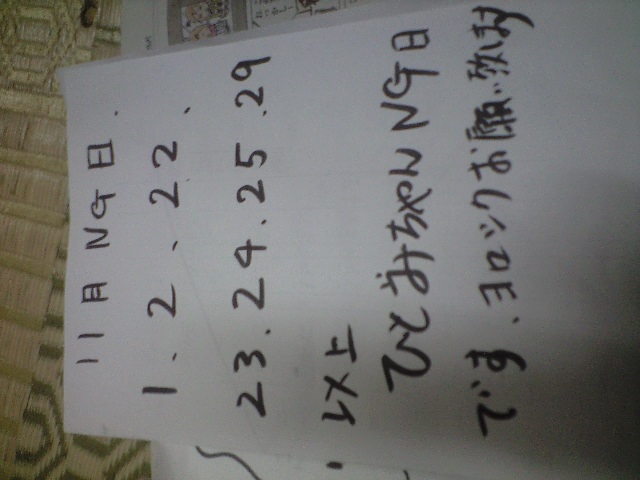 11月NG日.
1.2.、22、
23.24.25.29
以上
ひとみちゃんNG日
です、ヨロックお願い致します